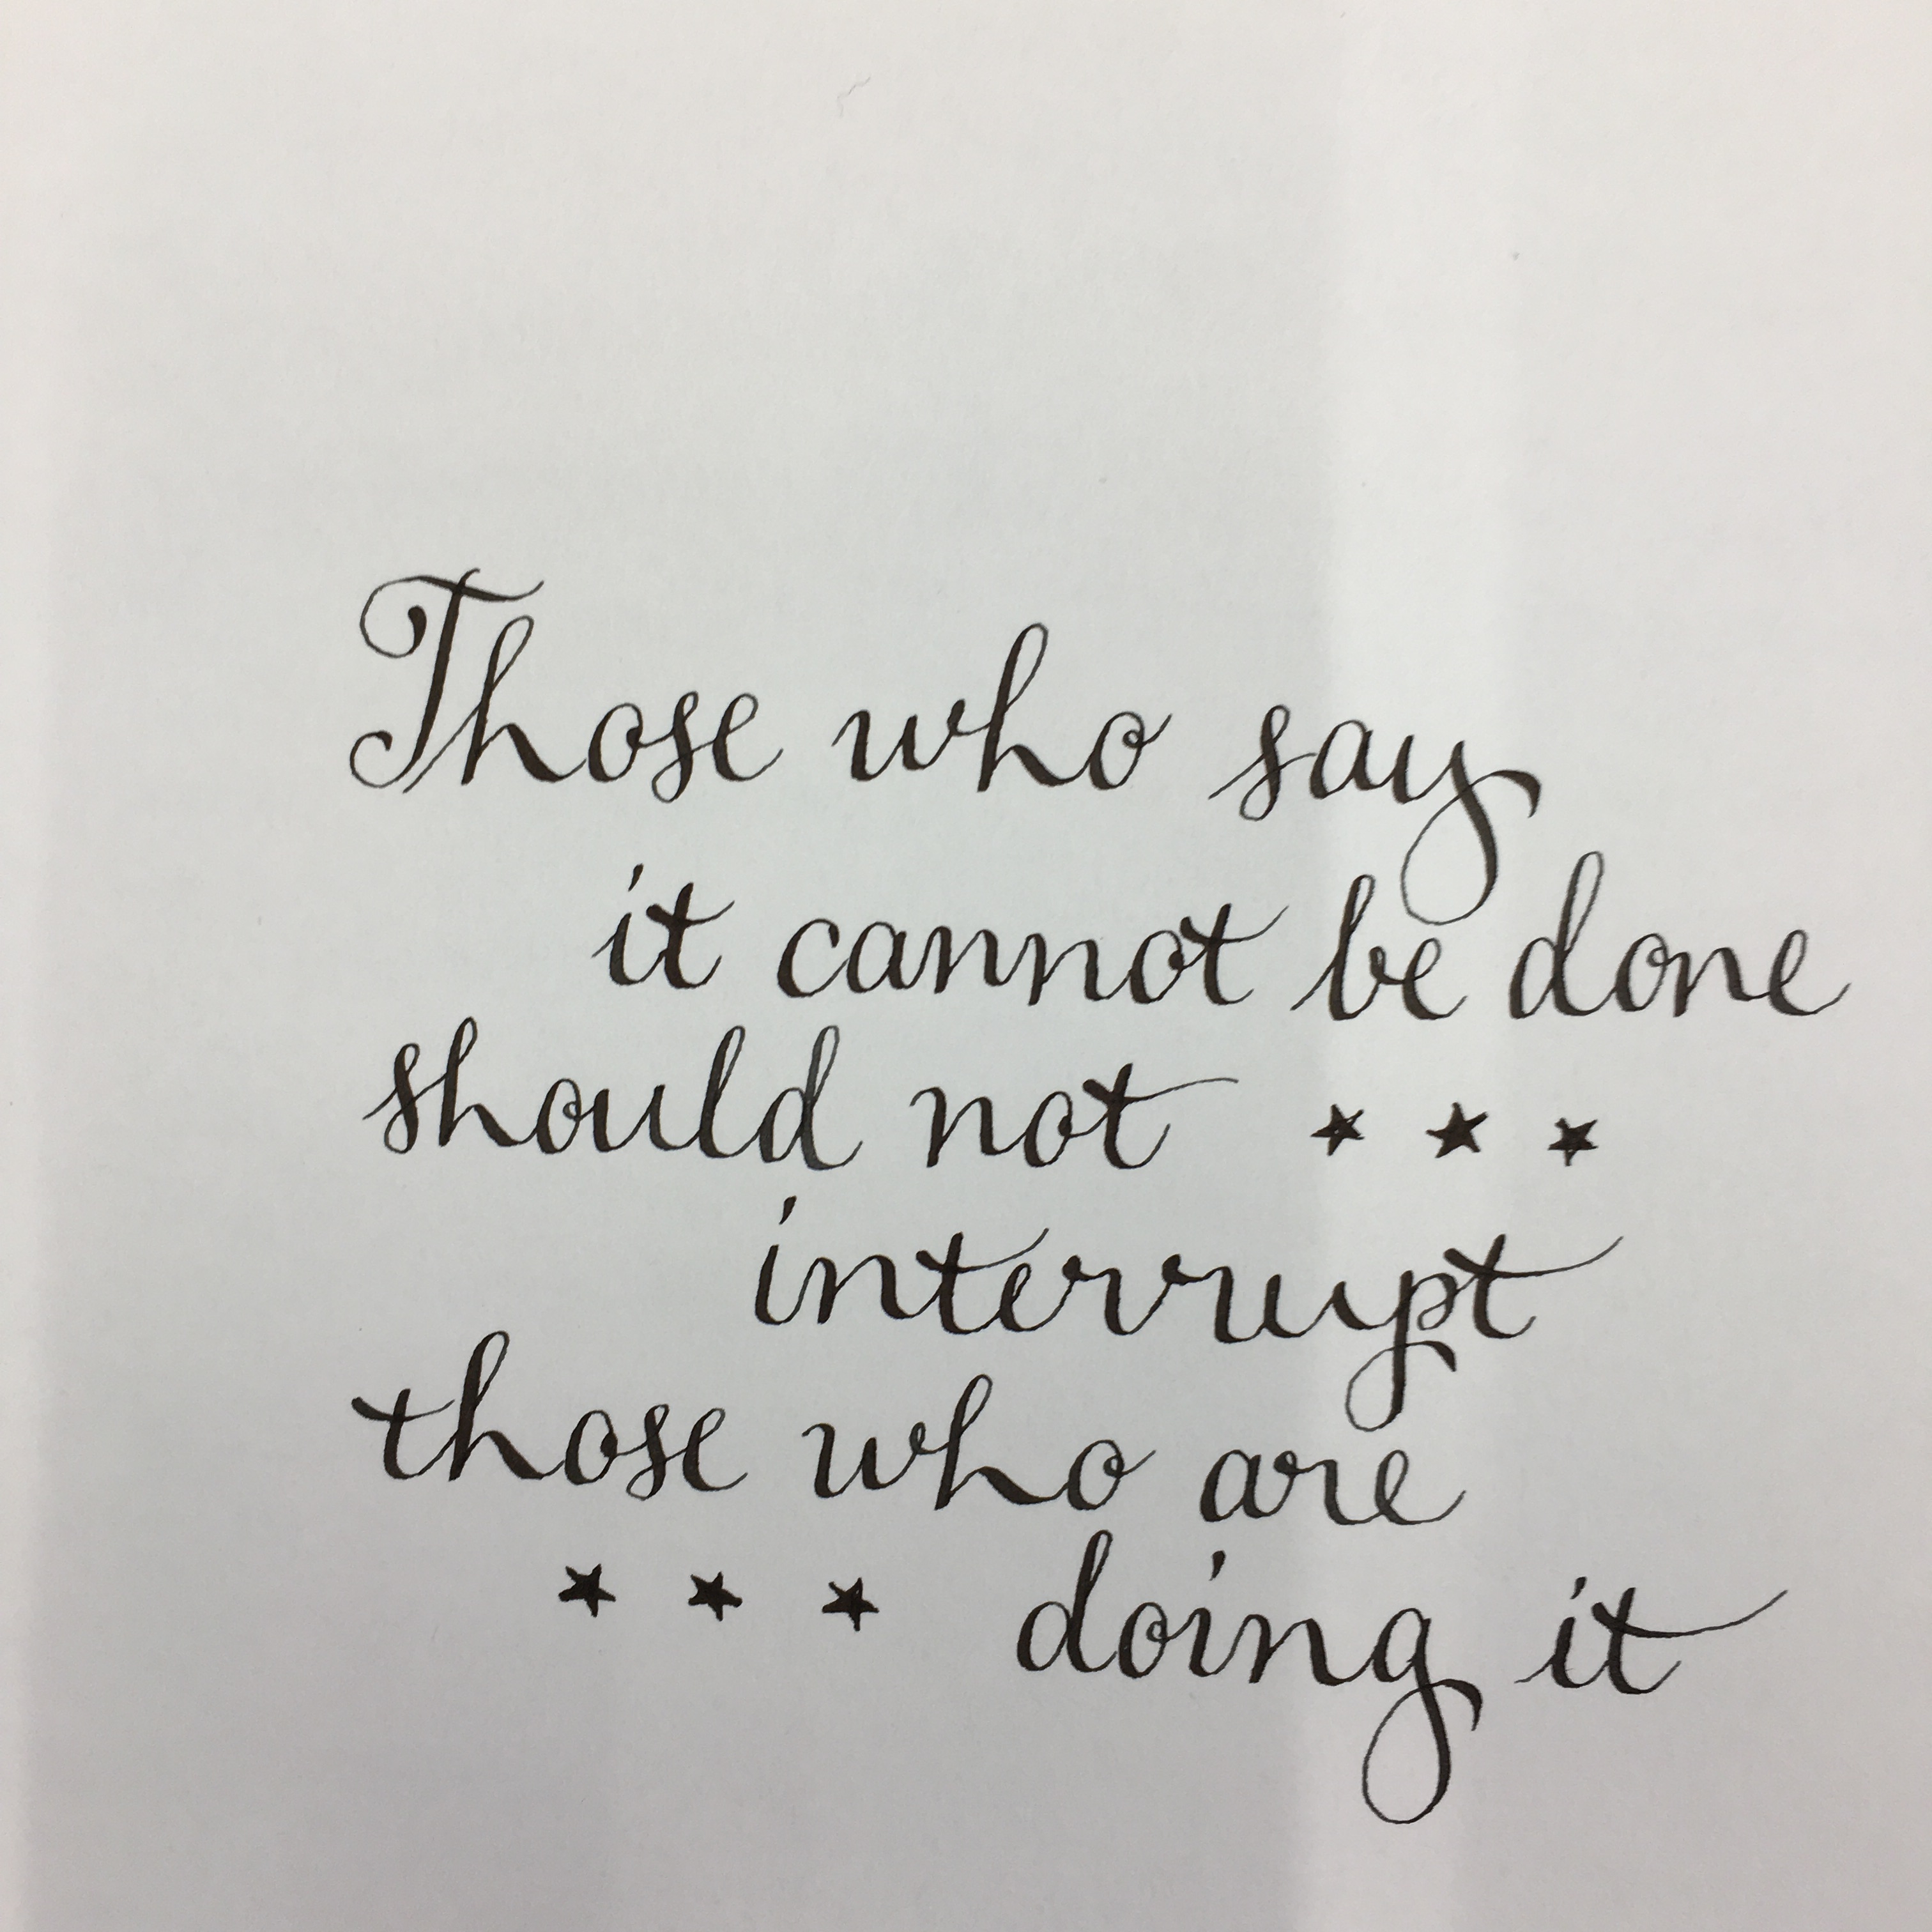 Those who say
it cannot be done
should not ★ ★ ★
interrupt
those who are
★ ★ ★ doing it